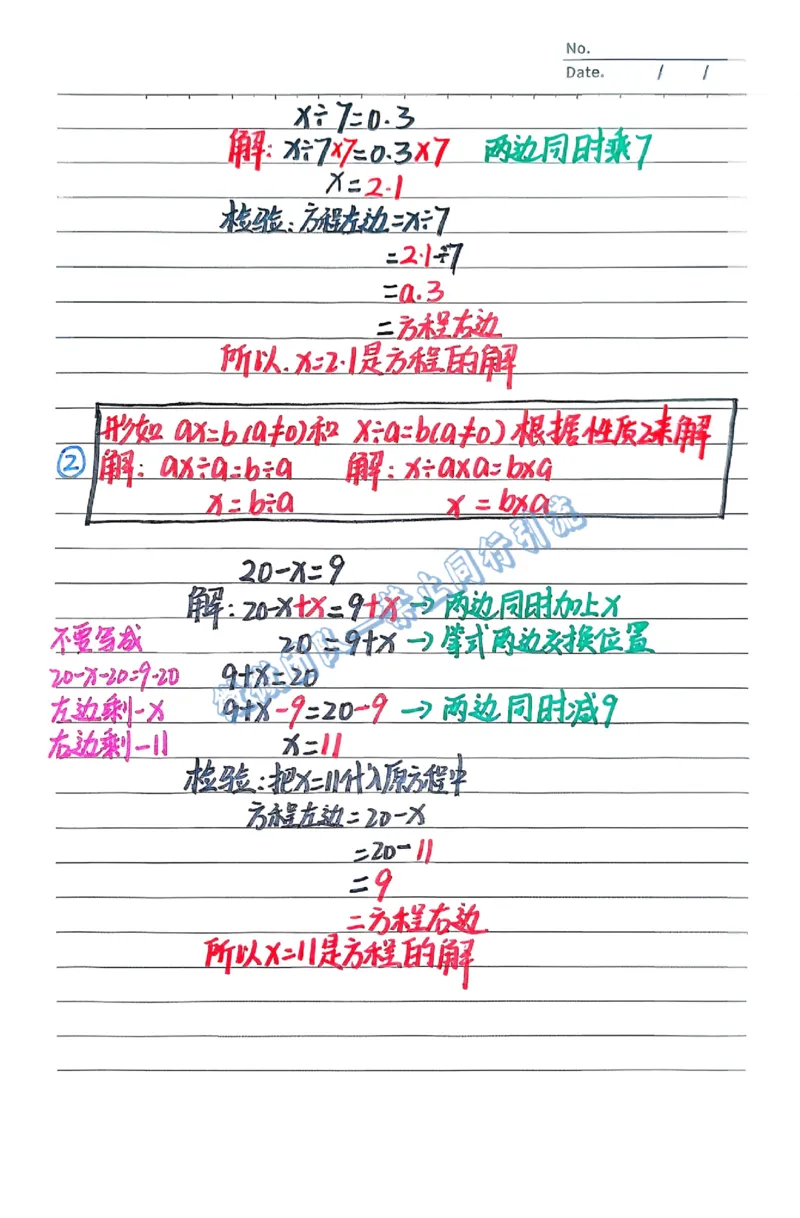 No.
Date. / /
x÷7=0.3
解：x÷7×7=0.3×7 两边同时乘7
x=2.1
检验：方程左边=x÷7
=2.1÷7
=0.3
=方程右边
所以.x=2.1是方程的解
② 形如 ax=b(a≠0)和 x÷a=b(a≠0)根据性质2来解
解：ax÷a=b÷a 解：x÷a×a=b×a
x=b÷a x=b×a
20-x=9
解：20-x+x=9+x→两边同时加上x
不要写成 20=9+x→等式两边交换位置
20-x-20=9-20 9+x=20
左边剩-x 9+x-9=20-9→两边同时减9
右边剩-11 x=11
检验：把x=11代入原方程中
方程左边=20-x
=20-11
=9
=方程右边
所以x=11是方程的解
禁止同行引流